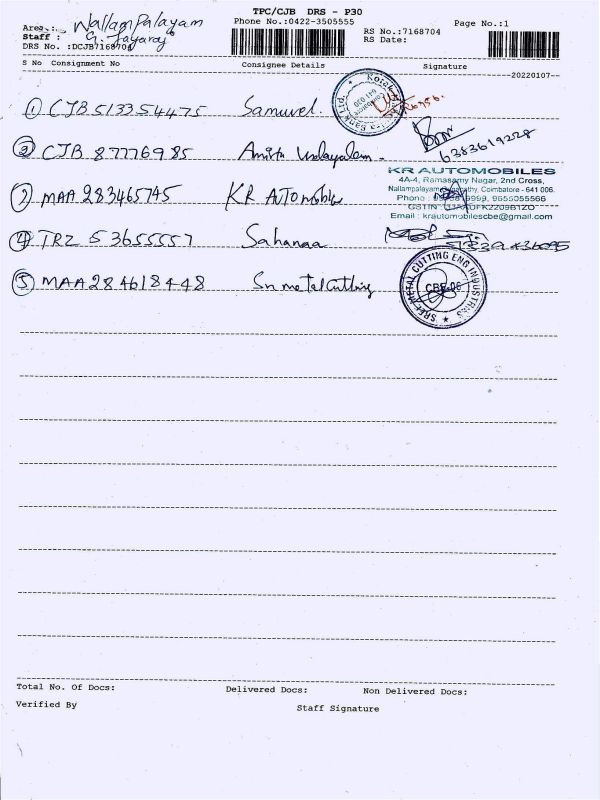 TPC/CJB DRS - P30
Area : Nallampalayam Phone No.:0422-3505555 Page No.:1
Staff : G. Jayaraj RS No.:7168704
DRS No. :DCJB7168704 RS Date:
S No Consignment No Consignee Details Signature
20220107
1 CJB 513354475 Samuvel.
Kotak Bank Ltd.
2 CJB 87776985 Amirta 6383619228
3 MAA 283465745 KR AUTomobile
KR AUTOMOBILES
4A-4, Ramasamy Nagar, 2nd Cross,
Nallampalayam Coimbatore - 641 006.
Phone : 9999, 9655055566
GSTIN
Email : krautomobilescbe@gmail.com
4 TRZ 53655557 Sahanaa
5 MAA 284618448 Sri metal Cutting
SREE METAL CUTTING ENG INDUSTRIES
CBE-06
Total No. Of Docs: Delivered Docs: Non Delivered Docs:
Verified By Staff Signature